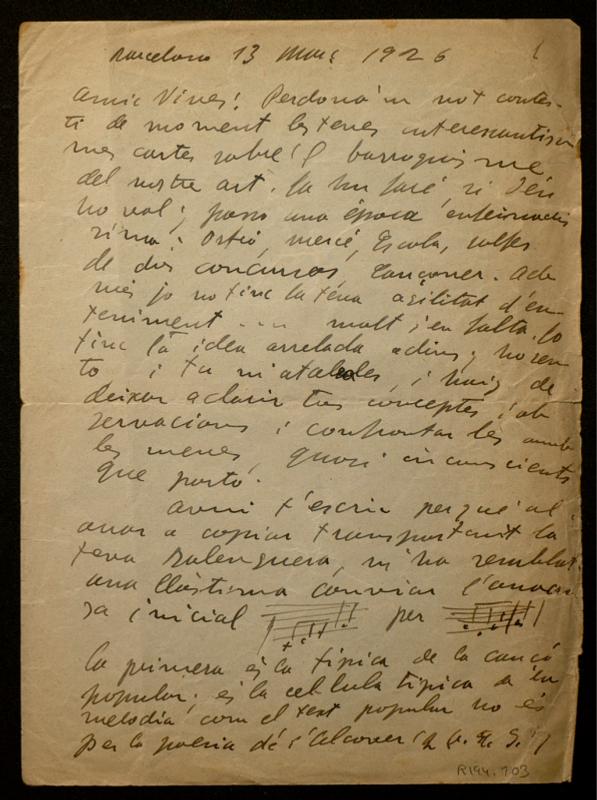 Barcelona 13 Març 1926
1
Amic Vives: Perdona'm no't contes-
ti de moment les teves interessantissi
mes cartes sobre'l barroquisme
del nostre art. Ja ho faré, si Déu
ho vol; passo una época enfeinadis
sima: Orfeó, Escola,
de dos concursos cançoner. Ade
més jo no tinc la teva agilitat d'en-
teniment ... molt i en falta. Jo
tinc la idea arrelada adins, i ho sen
to i tu m'atabales, i haig de
deixar aclarir tos conceptes i ob
servacions i confrontar les amb
les meues, quasi inconscients
que porto.
Avui t'escric perqué al
anar a copiar transportant la
teva Balenguera, m'ha semblat
una llástima canviar l'anacru
sa inicial per
la primera és la típica de la cançó
popular; és la cel·lula típica de la
melodia; com el text popular no és
per la poesia de l'Alcover (q. e. G. s.)
R194.103